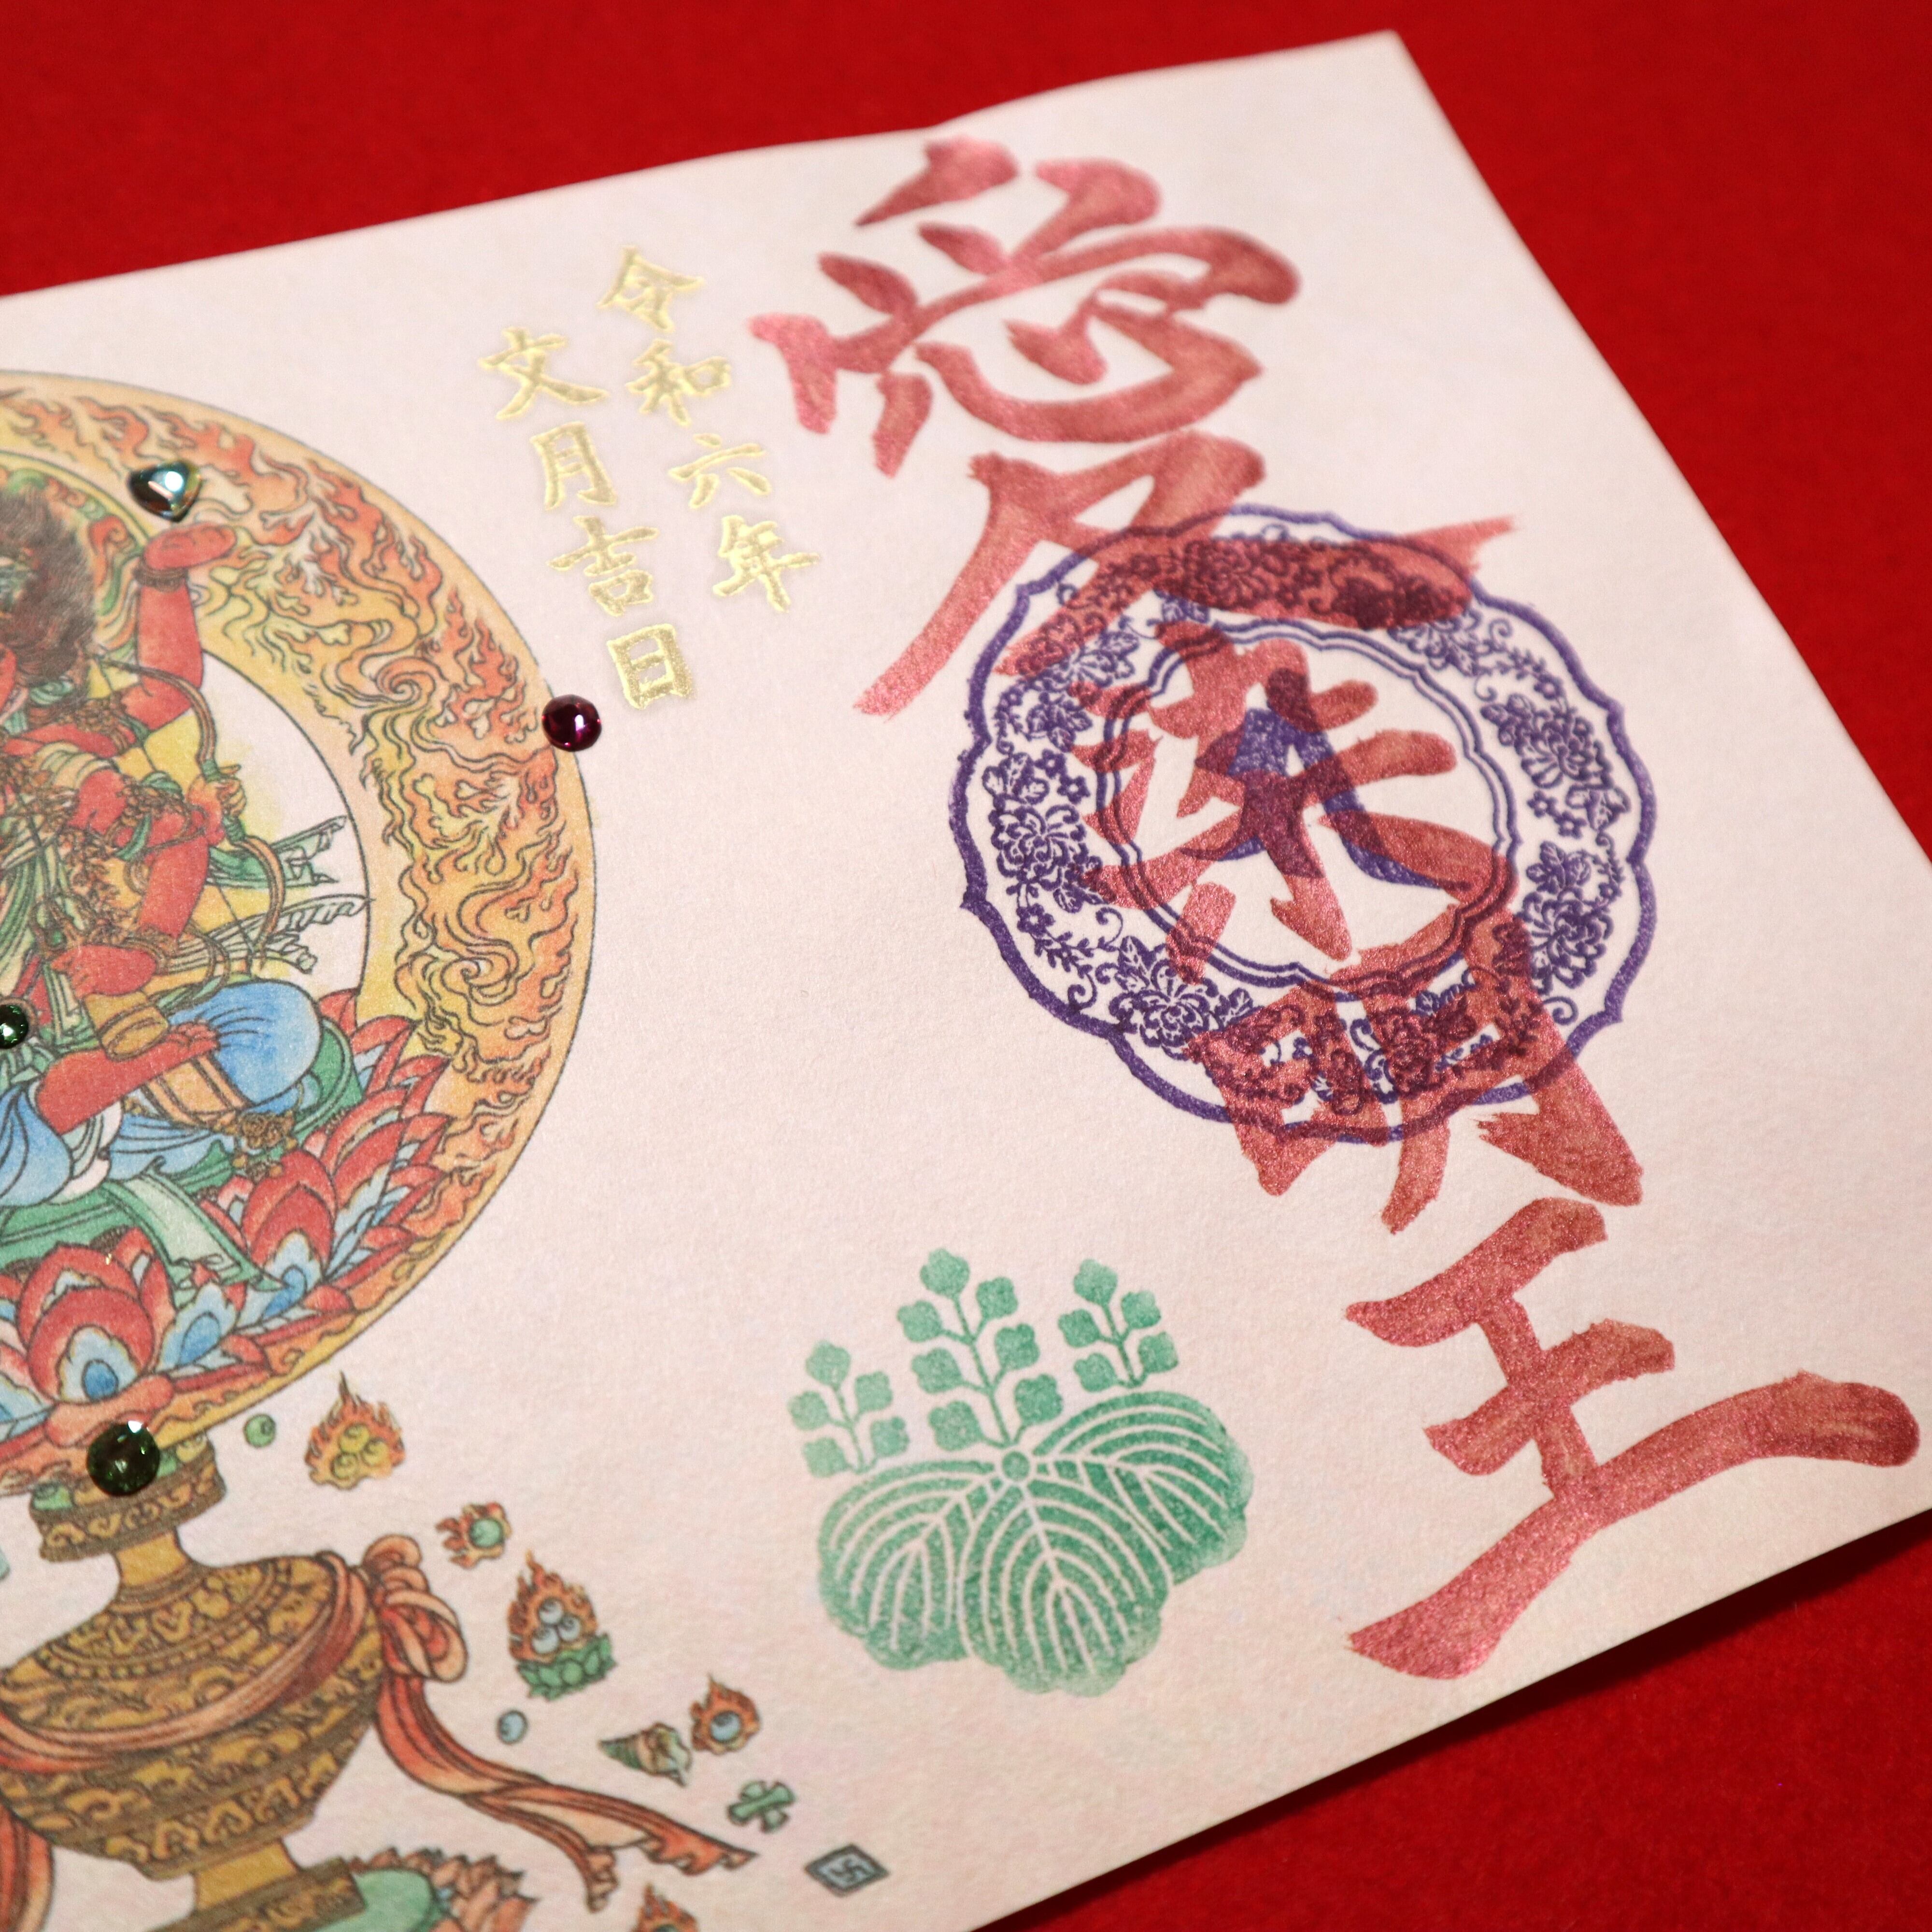 愛染明王
令和六年
文月吉日
大
卍